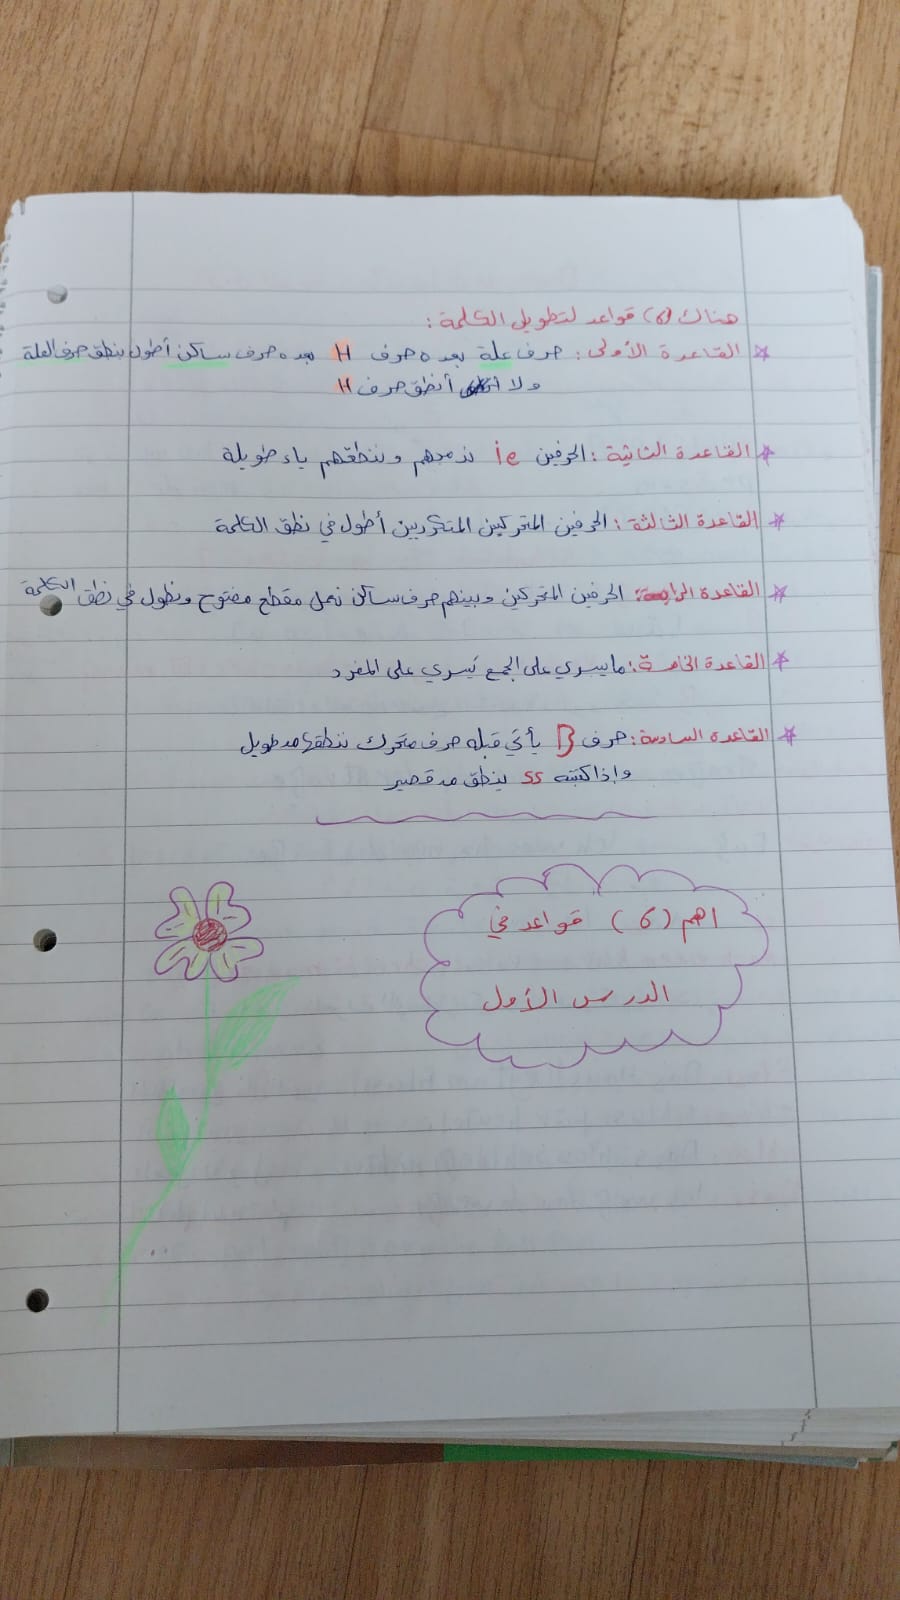 هناك (6) قواعد لتطويل الكلمة :
القاعدة الأولى : حرف علة بعده حرف H بعده حرف ساكن أطول بنطق حرف العلة
ولا أنطق حرف H
القاعدة الثانية : الحرفين ie ندمجهم وننطقهم ياء طويلة
القاعدة الثالثة : الحرفين المتحركين المتكررين أطول في نطق الكلمة
القاعدة الرابعة : الحرفين المتحركين وبينهم حرف ساكن نعمل مقطع مفتوح ونطول في نطق الكلمة
القاعدة الخامسة : ما يسري على الجمع يسري على المفرد
القاعدة السادسة : حرف ß يأتي قبله حرف متحرك ننطقها مد طويل
وإذا كتبته ss ينطق مد قصير
اهم (6) قواعد في
الدرس الأول